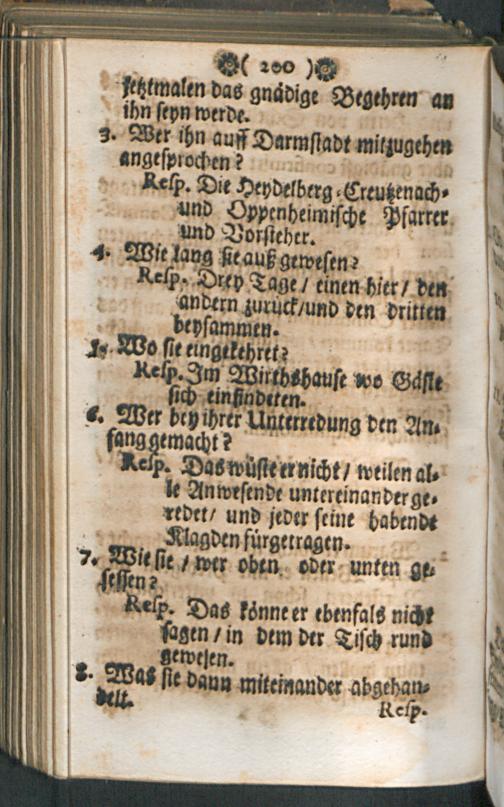 ( 200 )
jetztmalen das gnädige Begehren an
ihn seyn werde.
3. Wer ihn auff Darmstadt mitzugehen
angesprochen?
Resp. Die Heydelberg-Creutzenach-
und Oppenheimische Pfarrer
und Vorsteher.
4. Wie lang sie auß gewesen?
Resp. Drey Tage / einen hier / den
andern zurück/und den dritten
beysammen.
5. Wo sie eingekehret?
Resp. Im Wirthshause wo Gäste
sich einfindeten.
6. Wer bey ihrer Unterredung den An-
fang gemacht?
Resp. Das wüste er nicht / weilen al-
le Anwesende untereinander ge-
redet / und jeder seine habende
Klagden fürgetragen.
7. Wie sie / wer oben oder unten ge-
sessen?
Resp. Das könne er ebenfals nicht
sagen / in dem der Tisch rund
gewesen.
8. Was sie dann miteinander abgehan-
delt.
Resp.